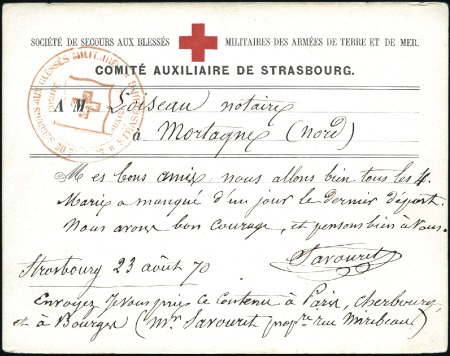 SOCIÉTÉ DE SECOURS AUX BLESSÉS MILITAIRES DES ARMÉES DE TERRE ET DE MER.
COMITÉ AUXILIAIRE DE STRASBOURG.
A M. Loiseau notaire
à Mortagne (nord)
Mes bons amis, nous allons bien tous les 4.
Marie a manqué d'un jour le dernier départ.
Nous avons bon courage, et pensons bien à vous.
Savouret
Strasbourg 23 août 70
Envoyez je vous prie ce contenu à Paris, Cherbourg,
et à Bourges (Mr Savouret propre rue Mirebeau)